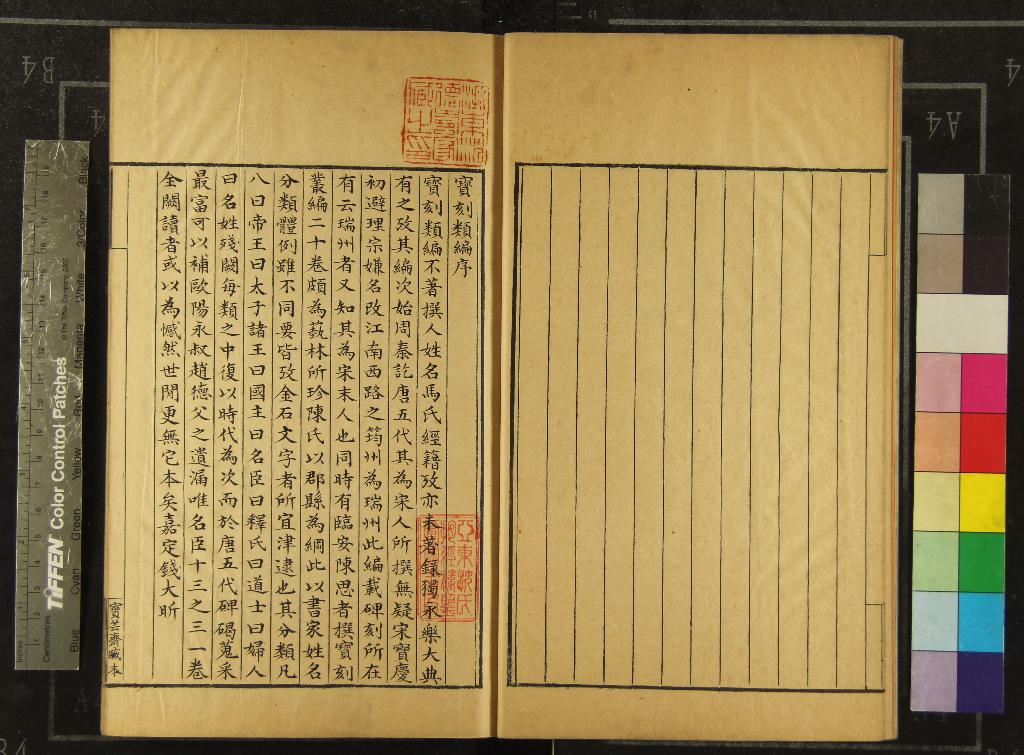 寶刻類編序
寶刻類編不著撰人姓名馬氏經籍攷亦未著錄獨永樂大典
有之攷其編次始周秦訖唐五代其為宋人所撰無疑宋寶慶
初避理宗嫌名改江南西路之筠州為瑞州此編載碑刻所在
有云瑞州者又知其為宋末人也同時有臨安陳思者撰寶刻
叢編二十卷頗為藝林所珍陳氏以郡縣為綱此以書家姓名
分類體例雖不同要皆攷金石文字者所宜津逮也其分類凡
八曰帝王曰太子諸王曰國主曰名臣曰釋氏曰道士曰婦人
曰名姓殘闕每類之中復以時代為次而於唐五代碑碣蒐采
最富可以補歐陽永叔趙德父之遺漏唯名臣十三之三一卷
全闕讀者或以為憾然世閒更無它本矣嘉定錢大昕
寶芸齋藏本
TIFFEN Color Control Patches
© The Tiffen Company, 2007
Inches
Centimetres
Blue
Cyan
Green
Yellow
Red
Magenta
White
3/Color
Black
B4
A4
A4